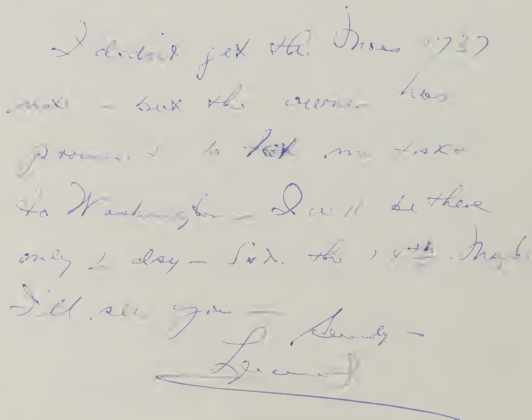 I didn't get the Mass 1737
note - but the owner has
promised to let me take
to Washington - I will be there
only 1 day - Sat. the 14th. Maybe
I'll see you -
Sincerely -